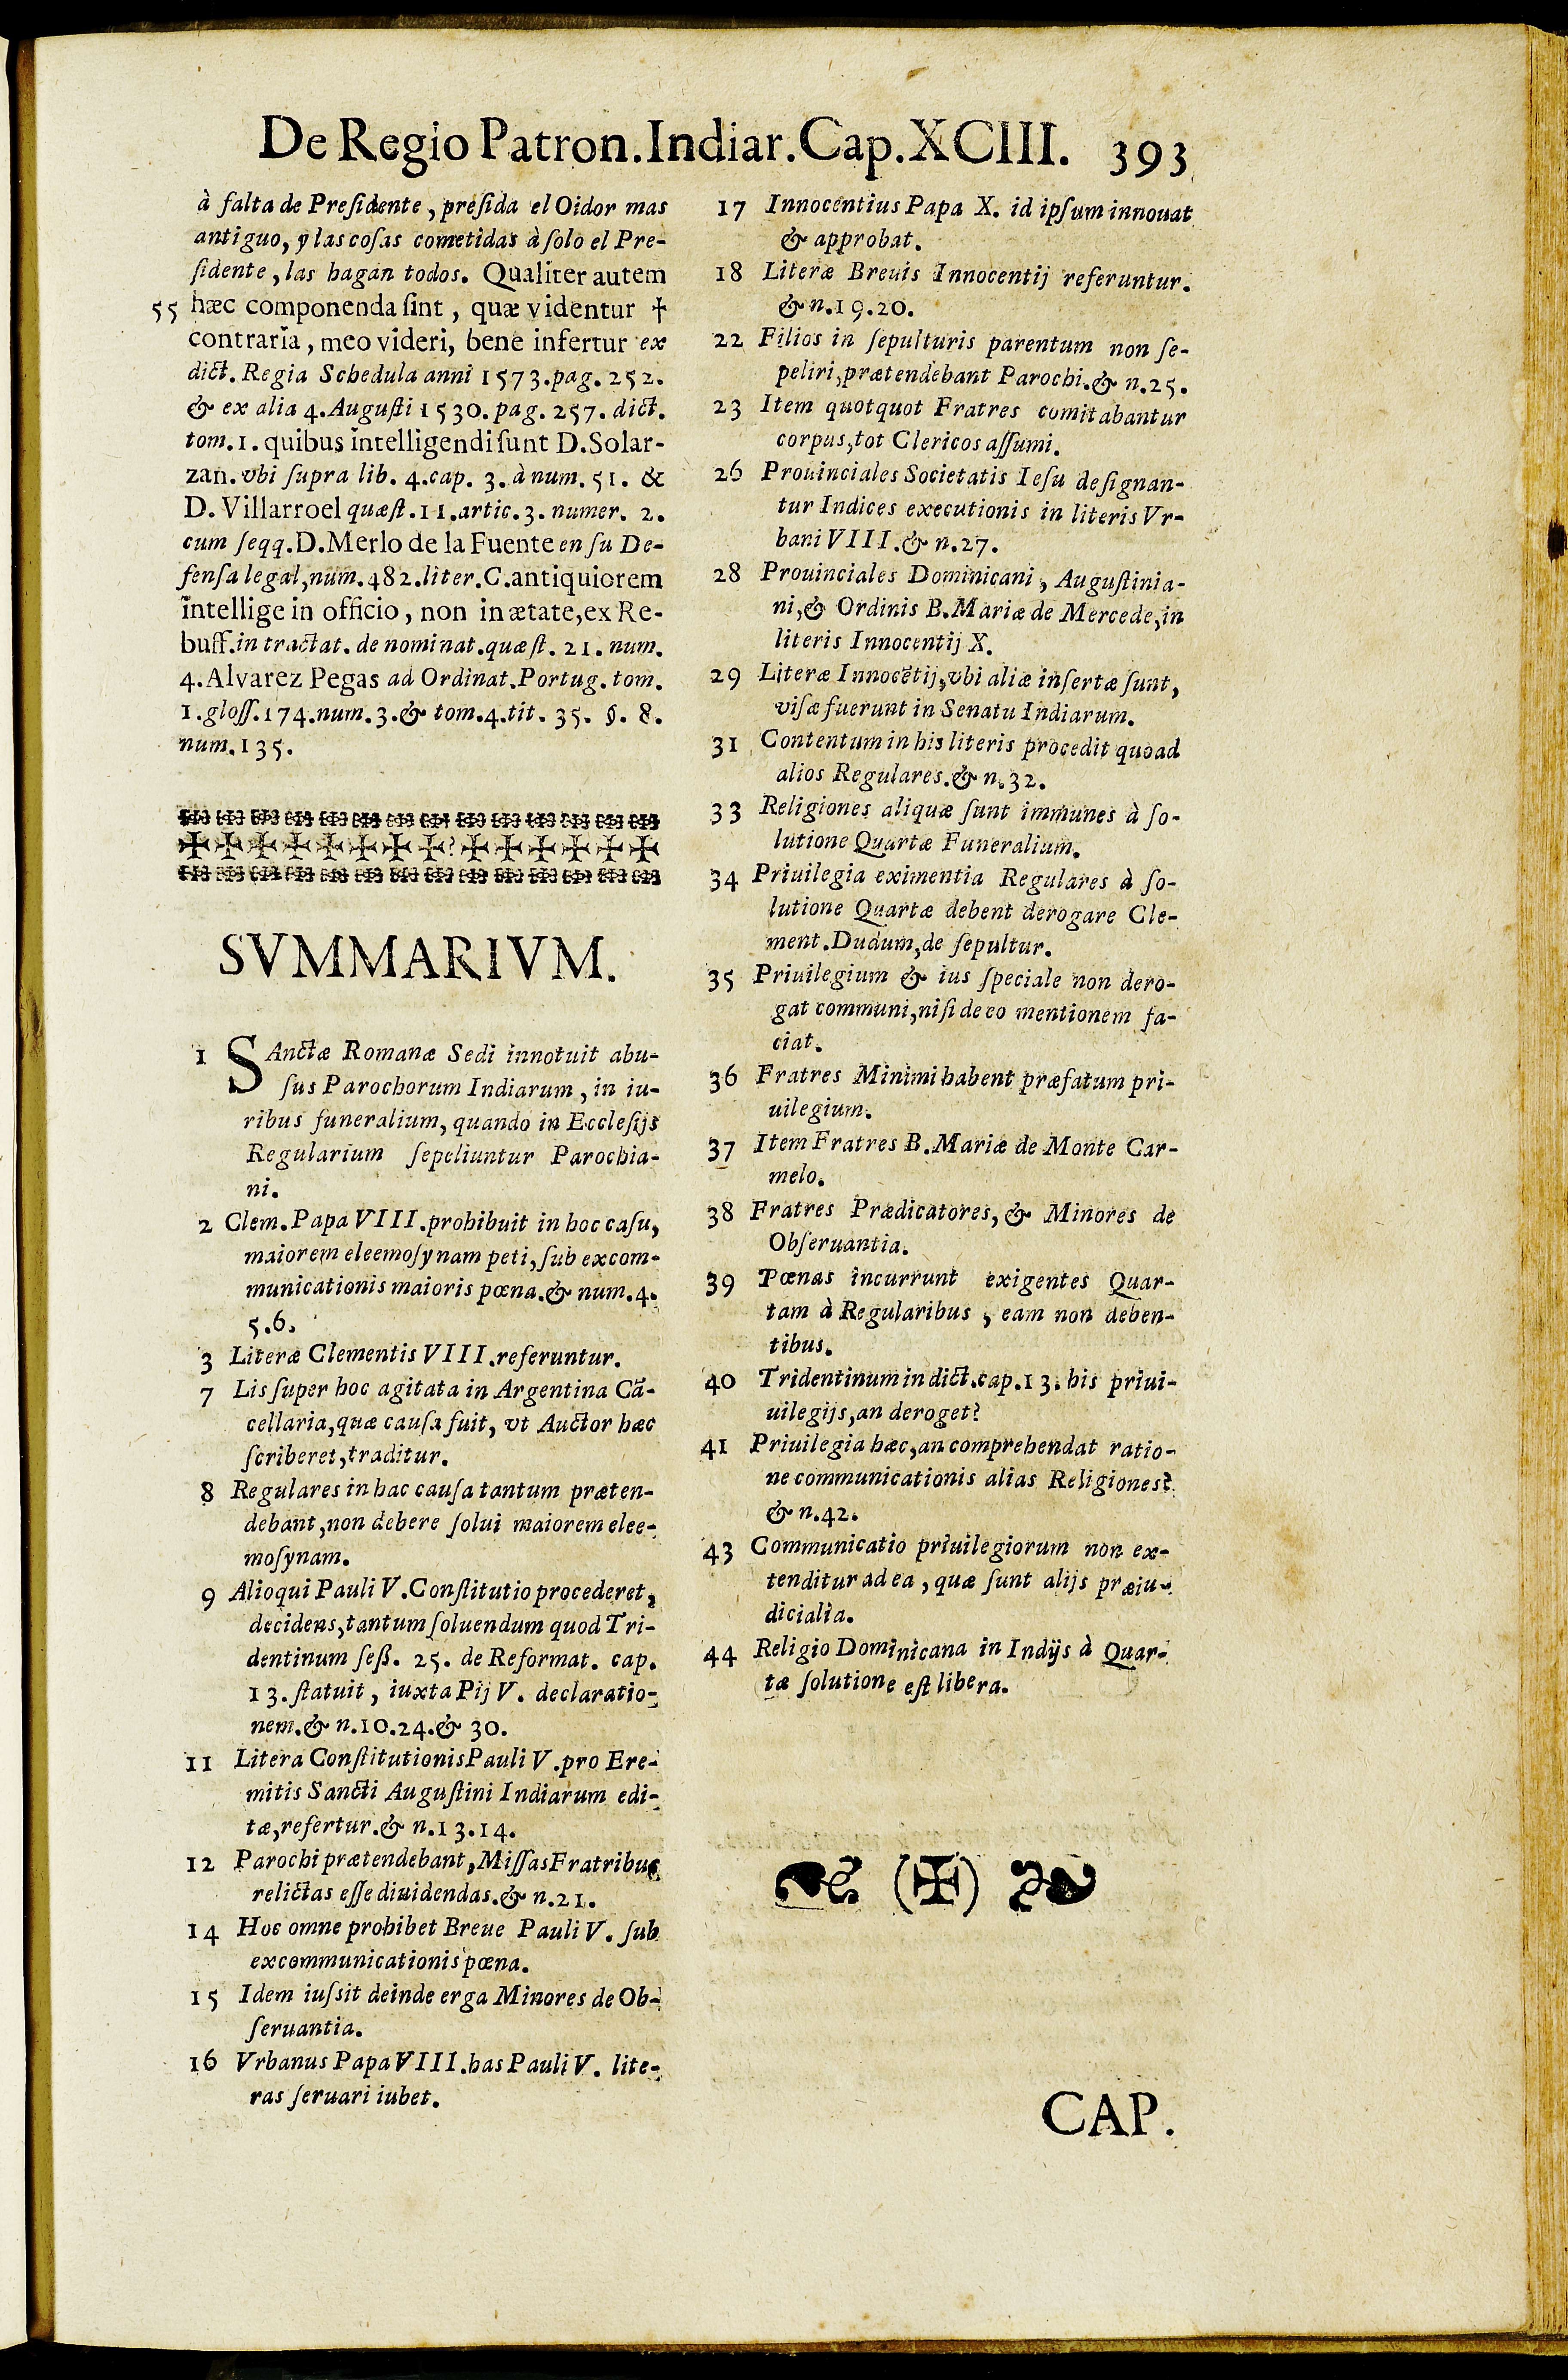 De Regio Patron. Indiar. Cap. XCIII. 393
à falta de Preſidente, preſida el Oidor mas
antiguo, y las coſas cometidas à ſolo el Pre-
ſidente, las hagan todos. Qualiter autem
55 hæc componenda ſint, quæ videntur †
contraria, meo videri, bene infertur ex
dict. Regia Schedula anni 1573. pag. 252.
& ex alia 4. Auguſti 1530. pag. 257. dict.
tom. 1. quibus intelligendi ſunt D. Solar-
zan. vbi ſupra lib. 4. cap. 3. à num. 51. &
D. Villarroel quæſt. 11. artic. 3. numer. 2.
cum ſeqq. D. Merlo de la Fuente en ſu De-
fenſa legal, num. 482. liter. C. antiquiorem
intellige in officio, non in ætate, ex Re-
buff. in tractat. de nominat. quæſt. 21. num.
4. Alvarez Pegas ad Ordinat. Portug. tom.
1. gloſſ. 174. num. 3. & tom. 4. tit. 35. §. 8.
num. 135.
SVMMARIVM.
1 SAnctæ Romanæ Sedi innotuit abu-
ſus Parochorum Indiarum, in iu-
ribus funeralium, quando in Eccleſijs
Regularium ſepeliuntur Parochia-
ni.
2 Clem. Papa VIII. prohibuit in hoc caſu,
maiorem eleemoſynam peti, ſub excom-
municationis maioris pœna. & num. 4.
5. 6.
3 Literæ Clementis VIII. referuntur.
7 Lis ſuper hoc agitata in Argentina Cã-
cellaria, quæ cauſa fuit, vt Auctor hæc
ſcriberet, traditur.
8 Regulares in hac cauſa tantum præten-
debant, non debere ſolui maiorem elee-
moſynam.
9 Alioqui Pauli V. Conſtitutio procederet,
decidens, tantum ſoluendum quod Tri-
dentinum ſeß. 25. de Reformat. cap.
13. ſtatuit, iuxta Pij V. declaratio-
nem. & n. 10. 24. & 30.
11 Litera Conſtitutionis Pauli V. pro Ere-
mitis Sancti Auguſtini Indiarum edi-
tæ, refertur. & n. 13. 14.
12 Parochi prætendebant, Miſſas Fratribus
relictas eſſe diuidendas. & n. 21.
14 Hoc omne prohibet Breue Pauli V. ſub
excommunicationis pœna.
15 Idem iuſsit deinde erga Minores de Ob-
ſeruantia.
16 Vrbanus Papa VIII. has Pauli V. lite-
ras ſeruari iubet.
17 Innocentius Papa X. id ipſum innouat
& approbat.
18 Literæ Breuis Innocentij referuntur.
& n. 19. 20.
22 Filios in ſepulturis parentum non ſe-
peliri, prætendebant Parochi. & n. 25.
23 Item quotquot Fratres comitabantur
corpus, tot Clericos aſſumi.
26 Prouinciales Societatis Ieſu deſignan-
tur Iudices executionis in literis Vr-
bani VIII. & n. 27.
28 Prouinciales Dominicani, Auguſtinia-
ni, & Ordinis B. Mariæ de Mercede, in
literis Innocentij X.
29 Literæ Innocẽtij, vbi aliæ inſertæ ſunt,
viſæ fuerunt in Senatu Indiarum.
31 Contentum in his literis procedit quoad
alios Regulares. & n. 32.
33 Religiones aliquæ ſunt immunes à ſo-
lutione Quartæ Funeralium.
34 Priuilegia eximentia Regulares à ſo-
lutione Quartæ debent derogare Cle-
ment. Dudum, de ſepultur.
35 Priuilegium & ius ſpeciale non dero-
gat communi, niſi de eo mentionem fa-
ciat.
36 Fratres Minimi habent præfatum pri-
uilegium.
37 Item Fratres B. Mariæ de Monte Car-
melo.
38 Fratres Prædicatores, & Minores de
Obſeruantia.
39 Pœnas incurrunt exigentes Quar-
tam à Regularibus, eam non deben-
tibus.
40 Tridentinum in dict. cap. 13. his priui-
uilegijs, an deroget?
41 Priuilegia hæc, an comprehendat ratio-
ne communicationis alias Religiones?
& n. 42.
43 Communicatio priuilegiorum non ex-
tenditur ad ea, quæ ſunt alijs præiu-
dicialia.
44 Religio Dominicana in Indijs à Quar-
tæ ſolutione eſt libera.
CAP.